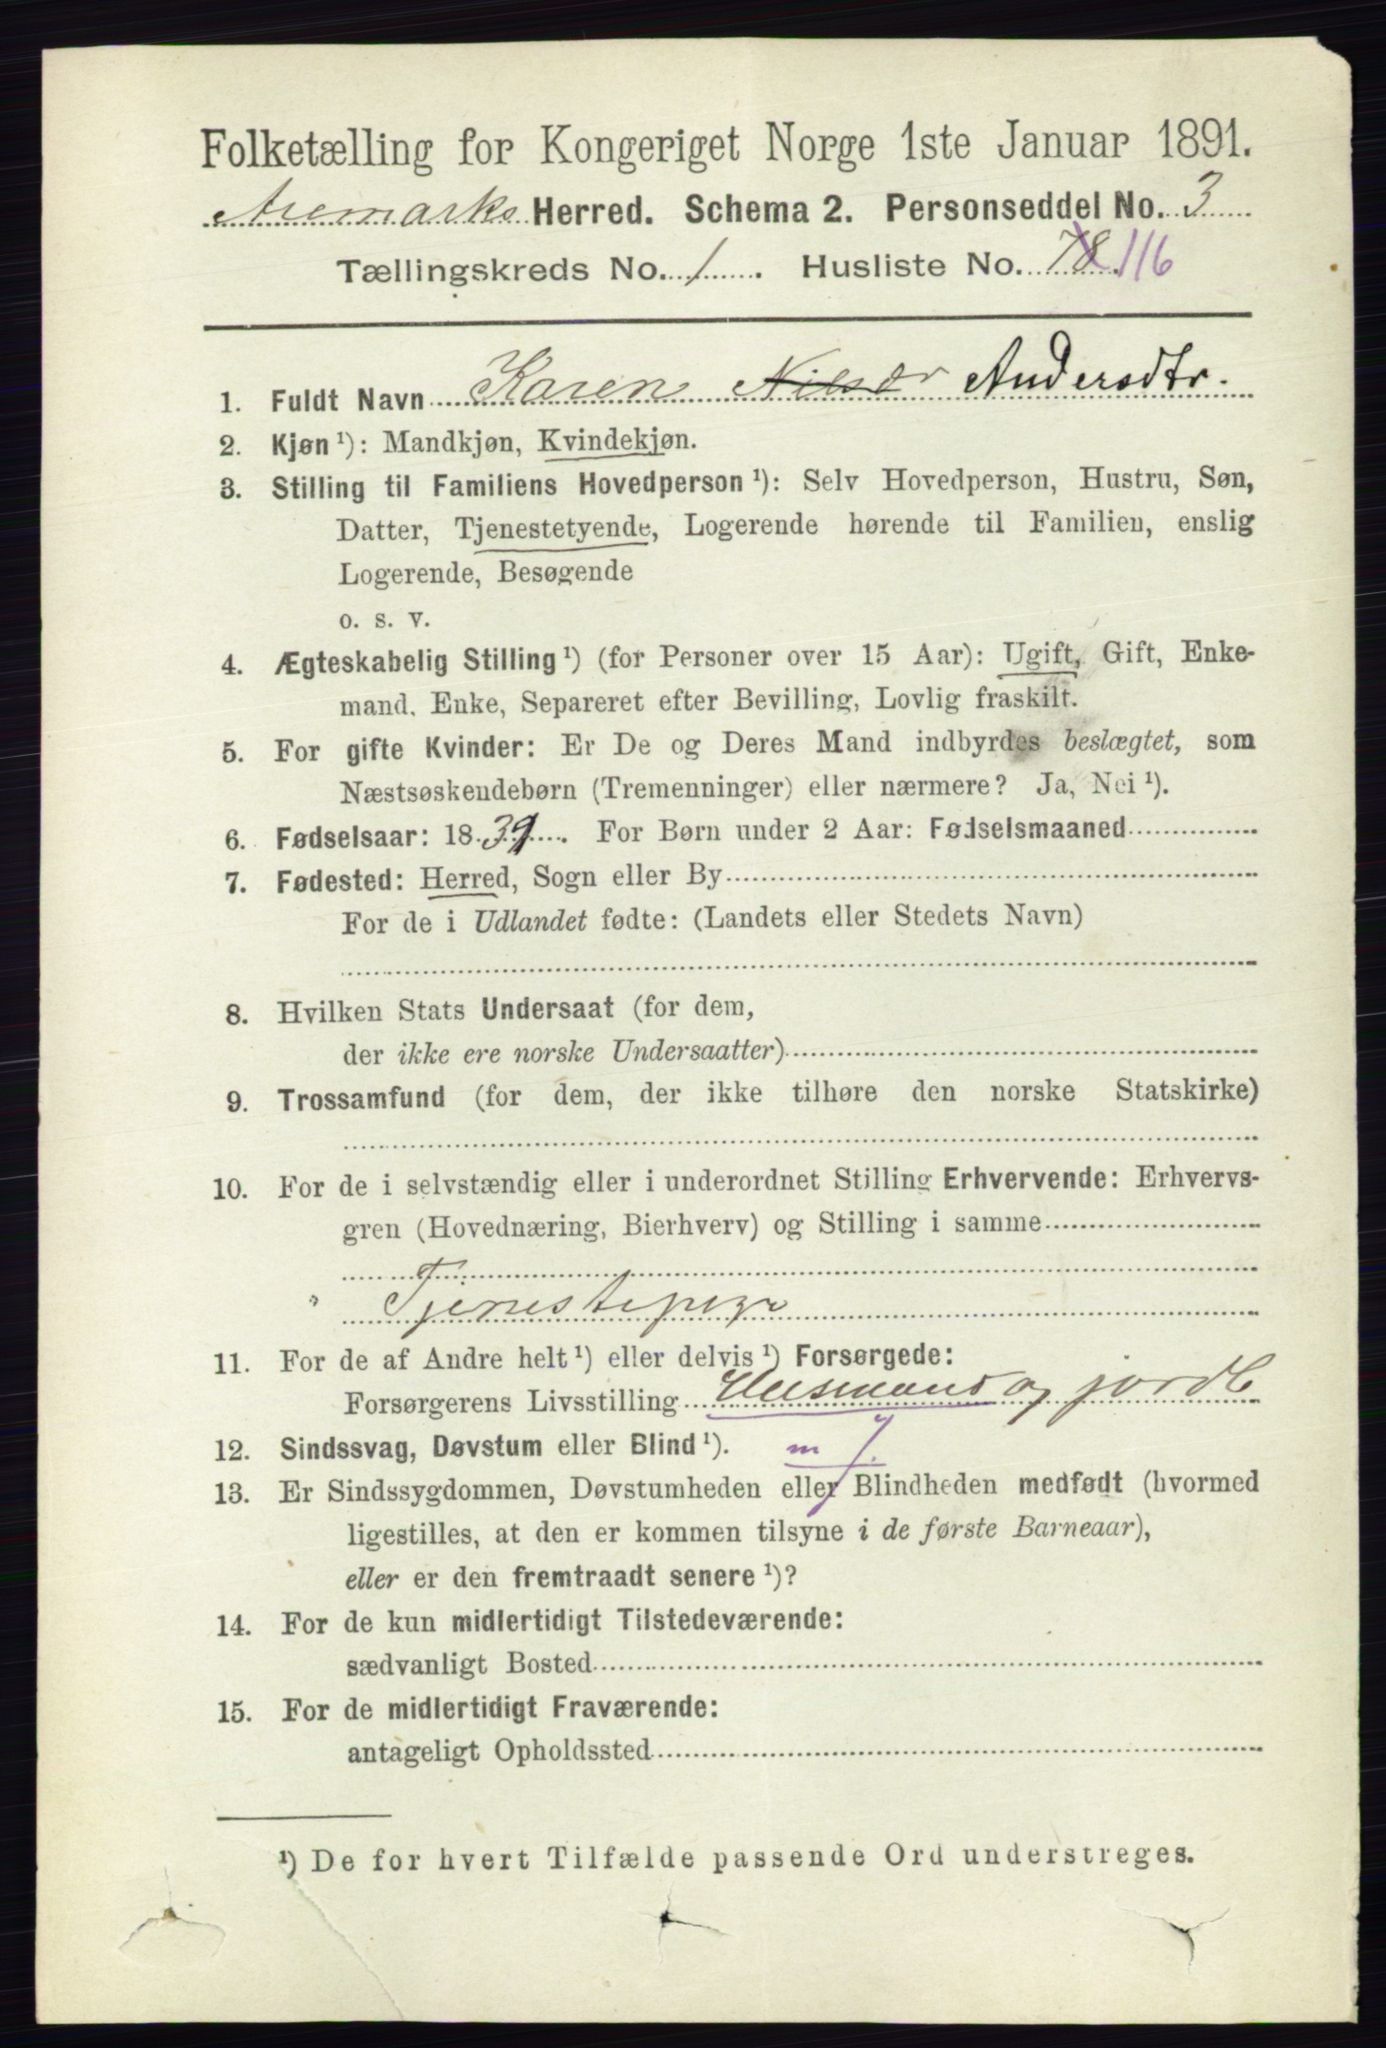 Folketælling for Kongeriget Norge 1ste Januar 1891.
Aremarks Herred. Schema 2. Personseddel No. 3
Tællingskreds No. 1. Husliste No. 78 116
1. Fuldt Navn Karen Nilsdr Andersdtr.
2. Kjøn ¹): Mandkjøn, Kvindekjøn.
3. Stilling til Familiens Hovedperson ¹): Selv Hovedperson, Hustru, Søn,
Datter, Tjenestetyende, Logerende hørende til Familien, enslig
Logerende, Besøgende
o. s. v.
4. Ægteskabelig Stilling ¹) (for Personer over 15 Aar): Ugift, Gift, Enke-
mand, Enke, Separeret efter Bevilling, Lovlig fraskilt.
5. For gifte Kvinder: Er De og Deres Mand indbyrdes beslægtet, som
Næstsøskendebørn (Tremenninger) eller nærmere? Ja, Nei ¹).
6. Fødselsaar: 1839. For Børn under 2 Aar: Fødselsmaaned
7. Fødested: Herred, Sogn eller By
For de i Udlandet fødte: (Landets eller Stedets Navn)
8. Hvilken Stats Undersaat (for dem,
der ikke ere norske Undersaatter)
9. Trossamfund (for dem, der ikke tilhøre den norske Statskirke)
10. For de i selvstændig eller i underordnet Stilling Erhvervende: Erhvervs-
gren (Hovednæring, Bierhverv) og Stilling i samme
Tjenestepige
11. For de af Andre helt ¹) eller delvis ¹) Forsørgede:
Forsørgerens Livsstilling Husmand og jordb
12. Sindssvag, Døvstum eller Blind ¹). m
13. Er Sindssygdommen, Døvstumheden eller Blindheden medfødt (hvormed
ligestilles, at den er kommen tilsyne i de første Barneaar),
eller er den fremtraadt senere ¹)?
14. For de kun midlertidigt Tilstedeværende:
sædvanligt Bosted
15. For de midlertidigt Fraværende:
antageligt Opholdssted
¹) De for hvert Tilfælde passende Ord understreges.